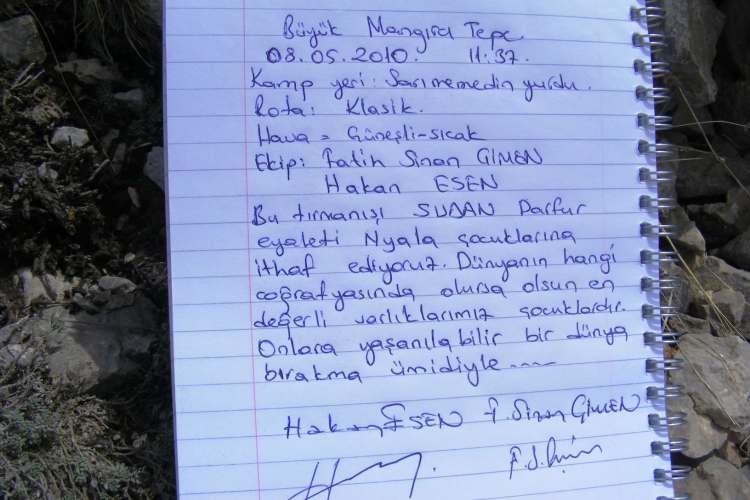 Büyük Mangırcı Tepe
08.05.2010. 11:37.
Kamp yeri: Sarımemedin yurdu.
Rota: Klasik.
Hava = Güneşli-sıcak
Ekip: Fatih Sinan ÇİMEN
Hakan ESEN
Bu tırmanışı SUDAN Darfur
eyaleti Nyala çocuklarına
ithaf ediyoruz. Dünyanın hangi
coğrafyasında olursa olsun en
değerli varlıklarımız çocuklardır.
Onlara yaşanılabilir bir dünya
bırakma ümidiyle ----
Hakan ESEN F. Sinan ÇİMEN
F.S.Çimen